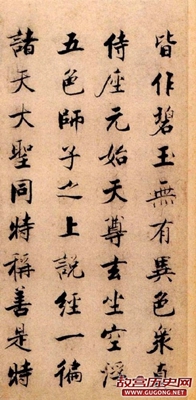 皆作碧玉無有異色衆真
侍座元始天尊玄坐空浮
五色師子之上說經一徧
諸天大聖同時稱善是時
故宫历史网